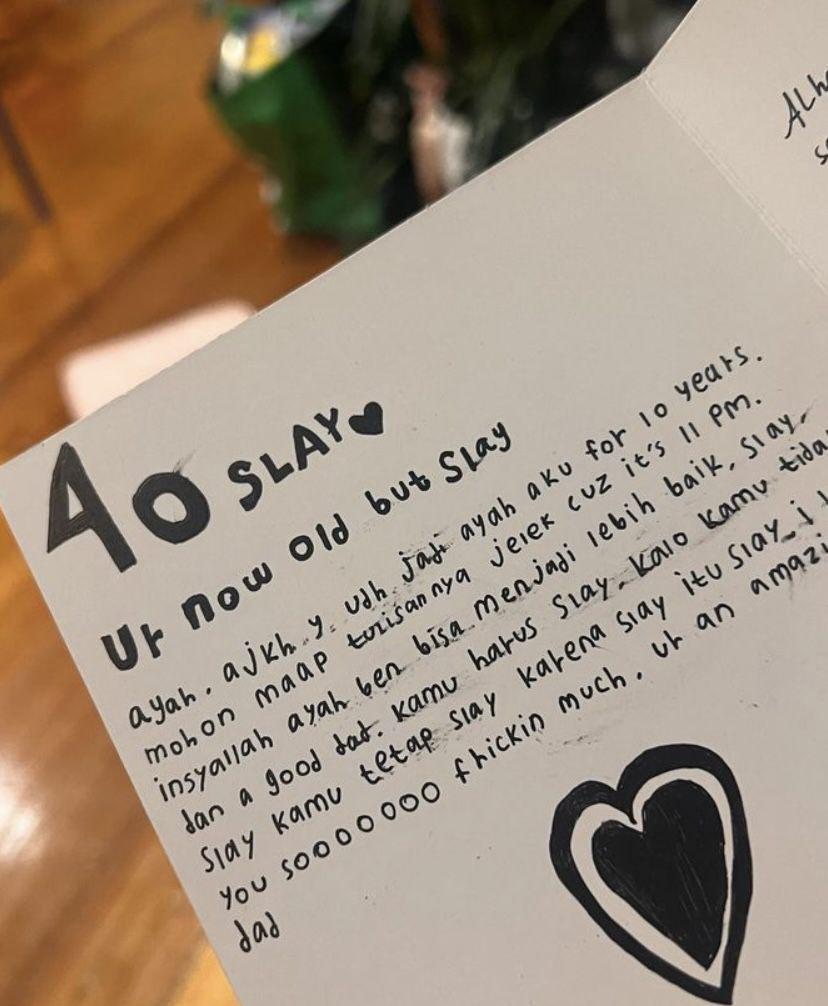 40 SLAY♥
Ur now old but slay
ayah, ajkh y. udh jadi ayah aku for 10 years.
mohon maap turisannya jelek cuz it's 11 pm.
insyallah ayah ben bisa menjadi lebih baik, slay,
dan a good dad. kamu harus slay. kalo kamu
slay kamu tetap slay karena slay itu slay. i
you sooooooo fhickin much. ur an
dad